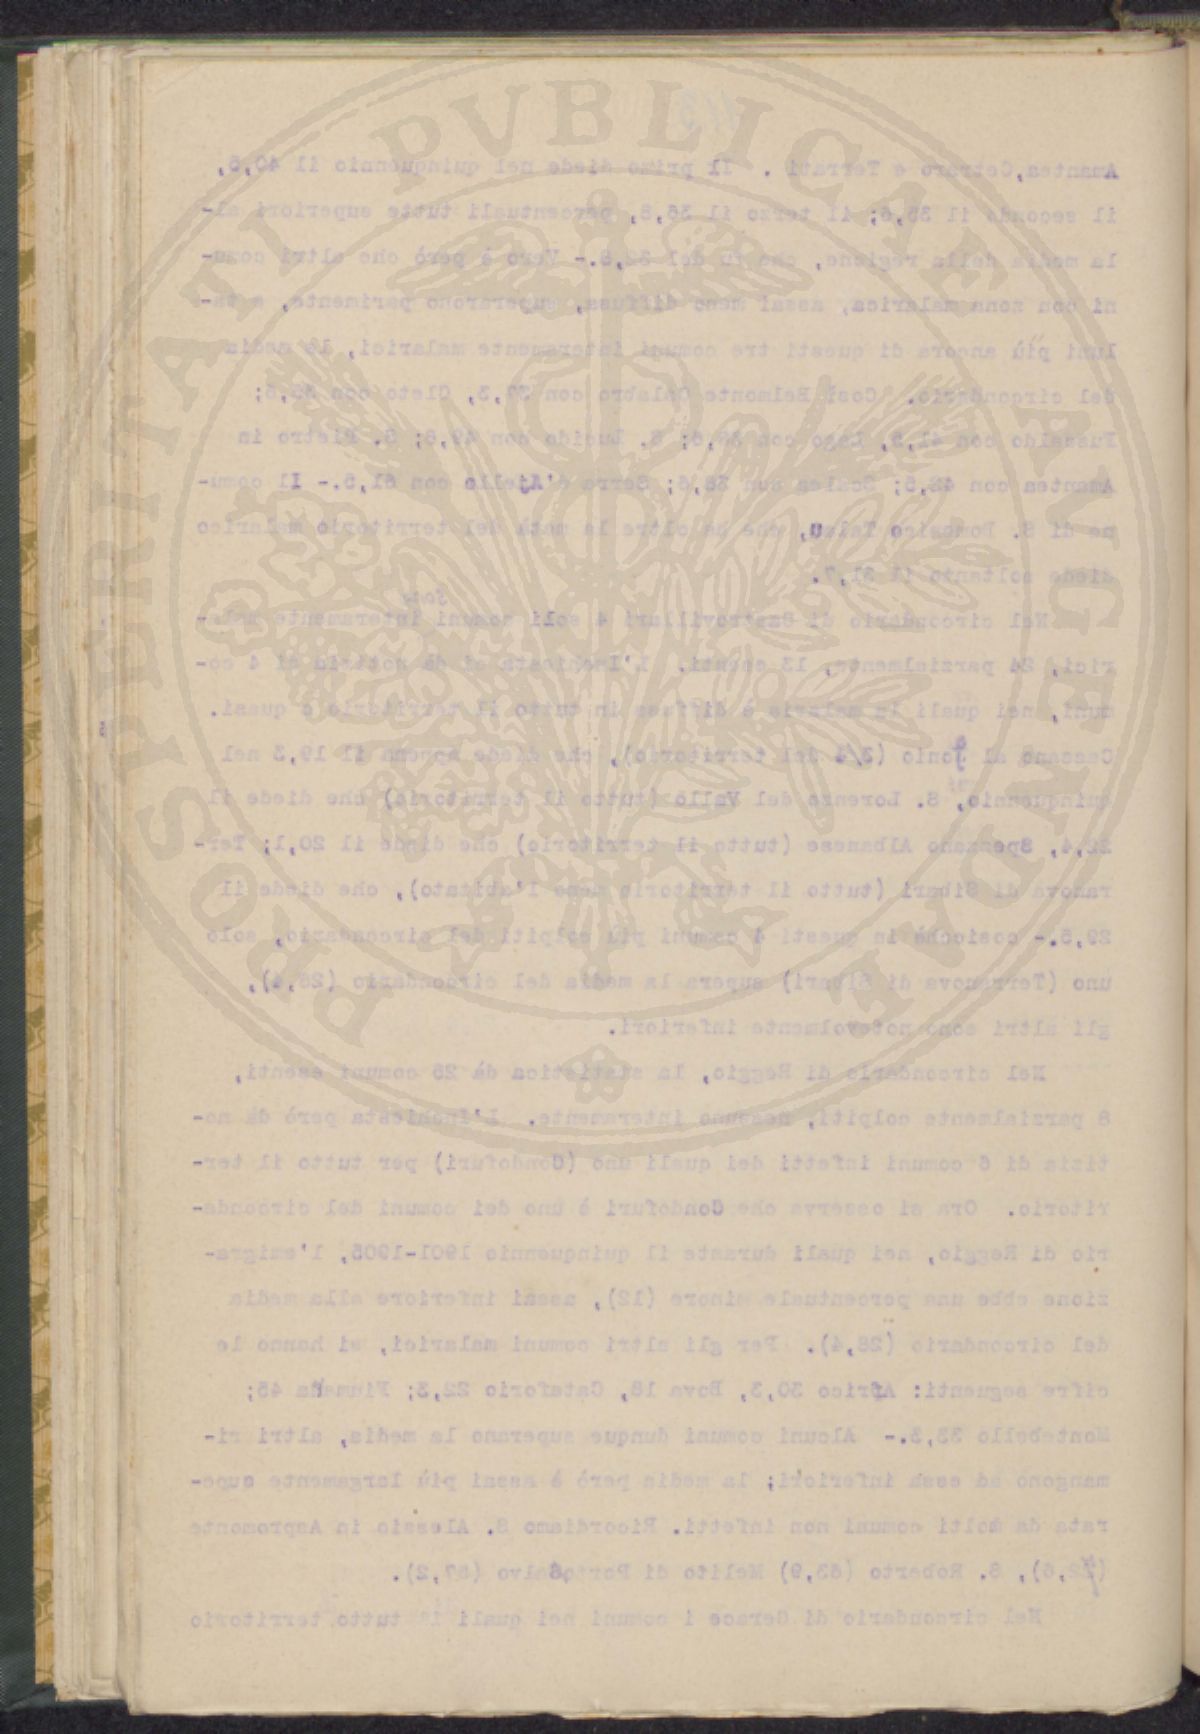 PROSPERITATI PVBLICAE AVGENDAE
113
Amantea, Cetraro e Terrati . Il primo diede nel quinquennio il 40,5,
il secondo il 35,6; il terzo il 36,8, percentuali tutte superiori al-
la media della regione, che fu del 32,8.- Vero è però che altri comu-
ni con zona malarica, assai meno diffusa, superarono parimente, e ta-
luni più ancora di questi tre comuni interamente malarici, la media
del circondario. Così Belmonte Calabro con 37,3, Cleto con
Fuscaldo con 41,5, Lago con 38,6; S. Lucido con 49,8; S. Pietro in
Amantea con 42,5; Scalea con 38,6; Serra d'Ajello con 61,5.- Il comu-
ne di S. Domenico Talao, che ha oltre la metà del territorio malarico
diede soltanto il 31,7.
Nel circondario di Castrovillari 4 soli comuni interamente mala-
rici, 24 parzialmente, 13 esenti. L'Inchiesta ci dà notizia di 4 co-
muni, nei quali la malaria è diffusa in tutto il territorio o quasi.
Cassano al Jonio (3/4 del territorio), che diede appena il 19,3 nel
quinquennio, S. Lorenzo del Vallo (tutto il territorio) che diede il
22,4, Spezzano Albanese (tutto il territorio) che diede il 20,1; Ter-
ranova di Sibari (tutto il territorio meno l'abitato), che diede il
29,5.- cosicchè in questi 4 comuni più colpiti del circondario, solo
uno (Terranova di Sibari) supera la media del circondario (26,4),
gli altri sono notevolmente inferiori.
Nel circondario di Reggio, la statistica dà 26 comuni esenti,
8 parzialmente colpiti, nessuno interamente. L'Inchiesta però dà no-
tizia di 6 comuni infetti dei quali uno (Condofuri) per tutto il ter-
ritorio. Ora si osserva che Condofuri è uno dei comuni del circonda-
rio di Reggio, nei quali durante il quinquennio 1901-1905, l'emigra-
zione ebbe una percentuale minore (12), assai inferiore alla media
del circondario (28,4). Per gli altri comuni malarici, si hanno le
cifre seguenti: Africo 30,3, Bova 18, Cataforio 22,3; Fiumara 45;
Montebello 33,3.- Alcuni comuni dunque superano la media, altri ri-
mangono ad essa inferiori; la media però è assai più largamente supe-
rata da molti comuni non infetti. Ricordiamo S. Alessio in Aspromonte
S. Roberto (63,9) Melito di Portosalvo (57,2).
Nel circondario di Gerace i comuni nei quali tutto territorio